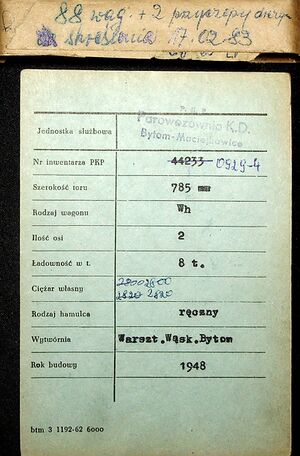 88 wag. + 2 przyczepy
skreślenia 17.02.83
P. K. P.
Parowozownia K.D.
Bytom-Maciejkowice
Jednostka służbowa
Nr inwentarza PKP 44233 0929-4
Szerokość toru 785 mm
Rodzaj wagonu Wh
Ilość osi 2
Ładowność w t. 8 t.
Ciężar własny 2800 2800
2820 2820
Rodzaj hamulca ręczny
Wytwórnia Warszt.Wąsk.Bytom
Rok budowy 1948
btm 3 1192-62 6000